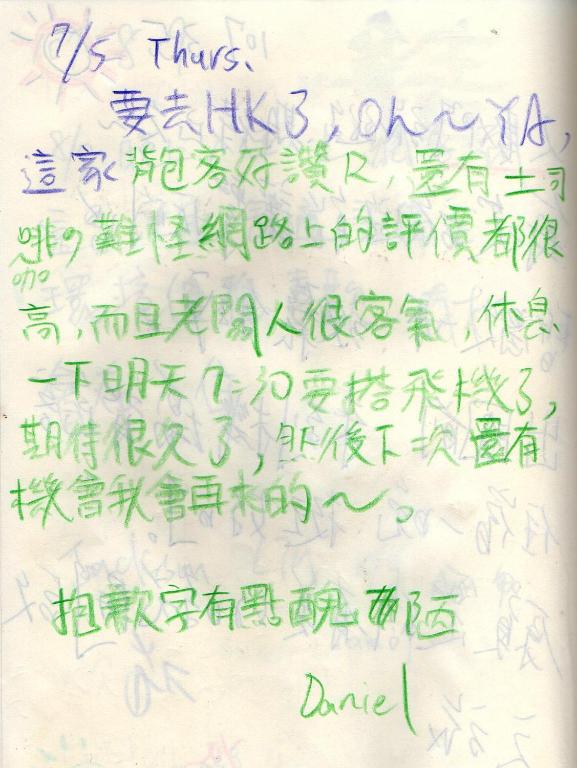 7/5 Thurs.
要去HK了，Oh～YA，
這家背包客好讚ㄗ，還有土司
咖啡，難怪網路上的評價都很
高，而且老闆人很客氣，休息
一下明天7:30要搭飛機了，
期待很久了，然後下次還有
機會我會再來的～。
抱歉字有點醜 鄙陋
Daniel